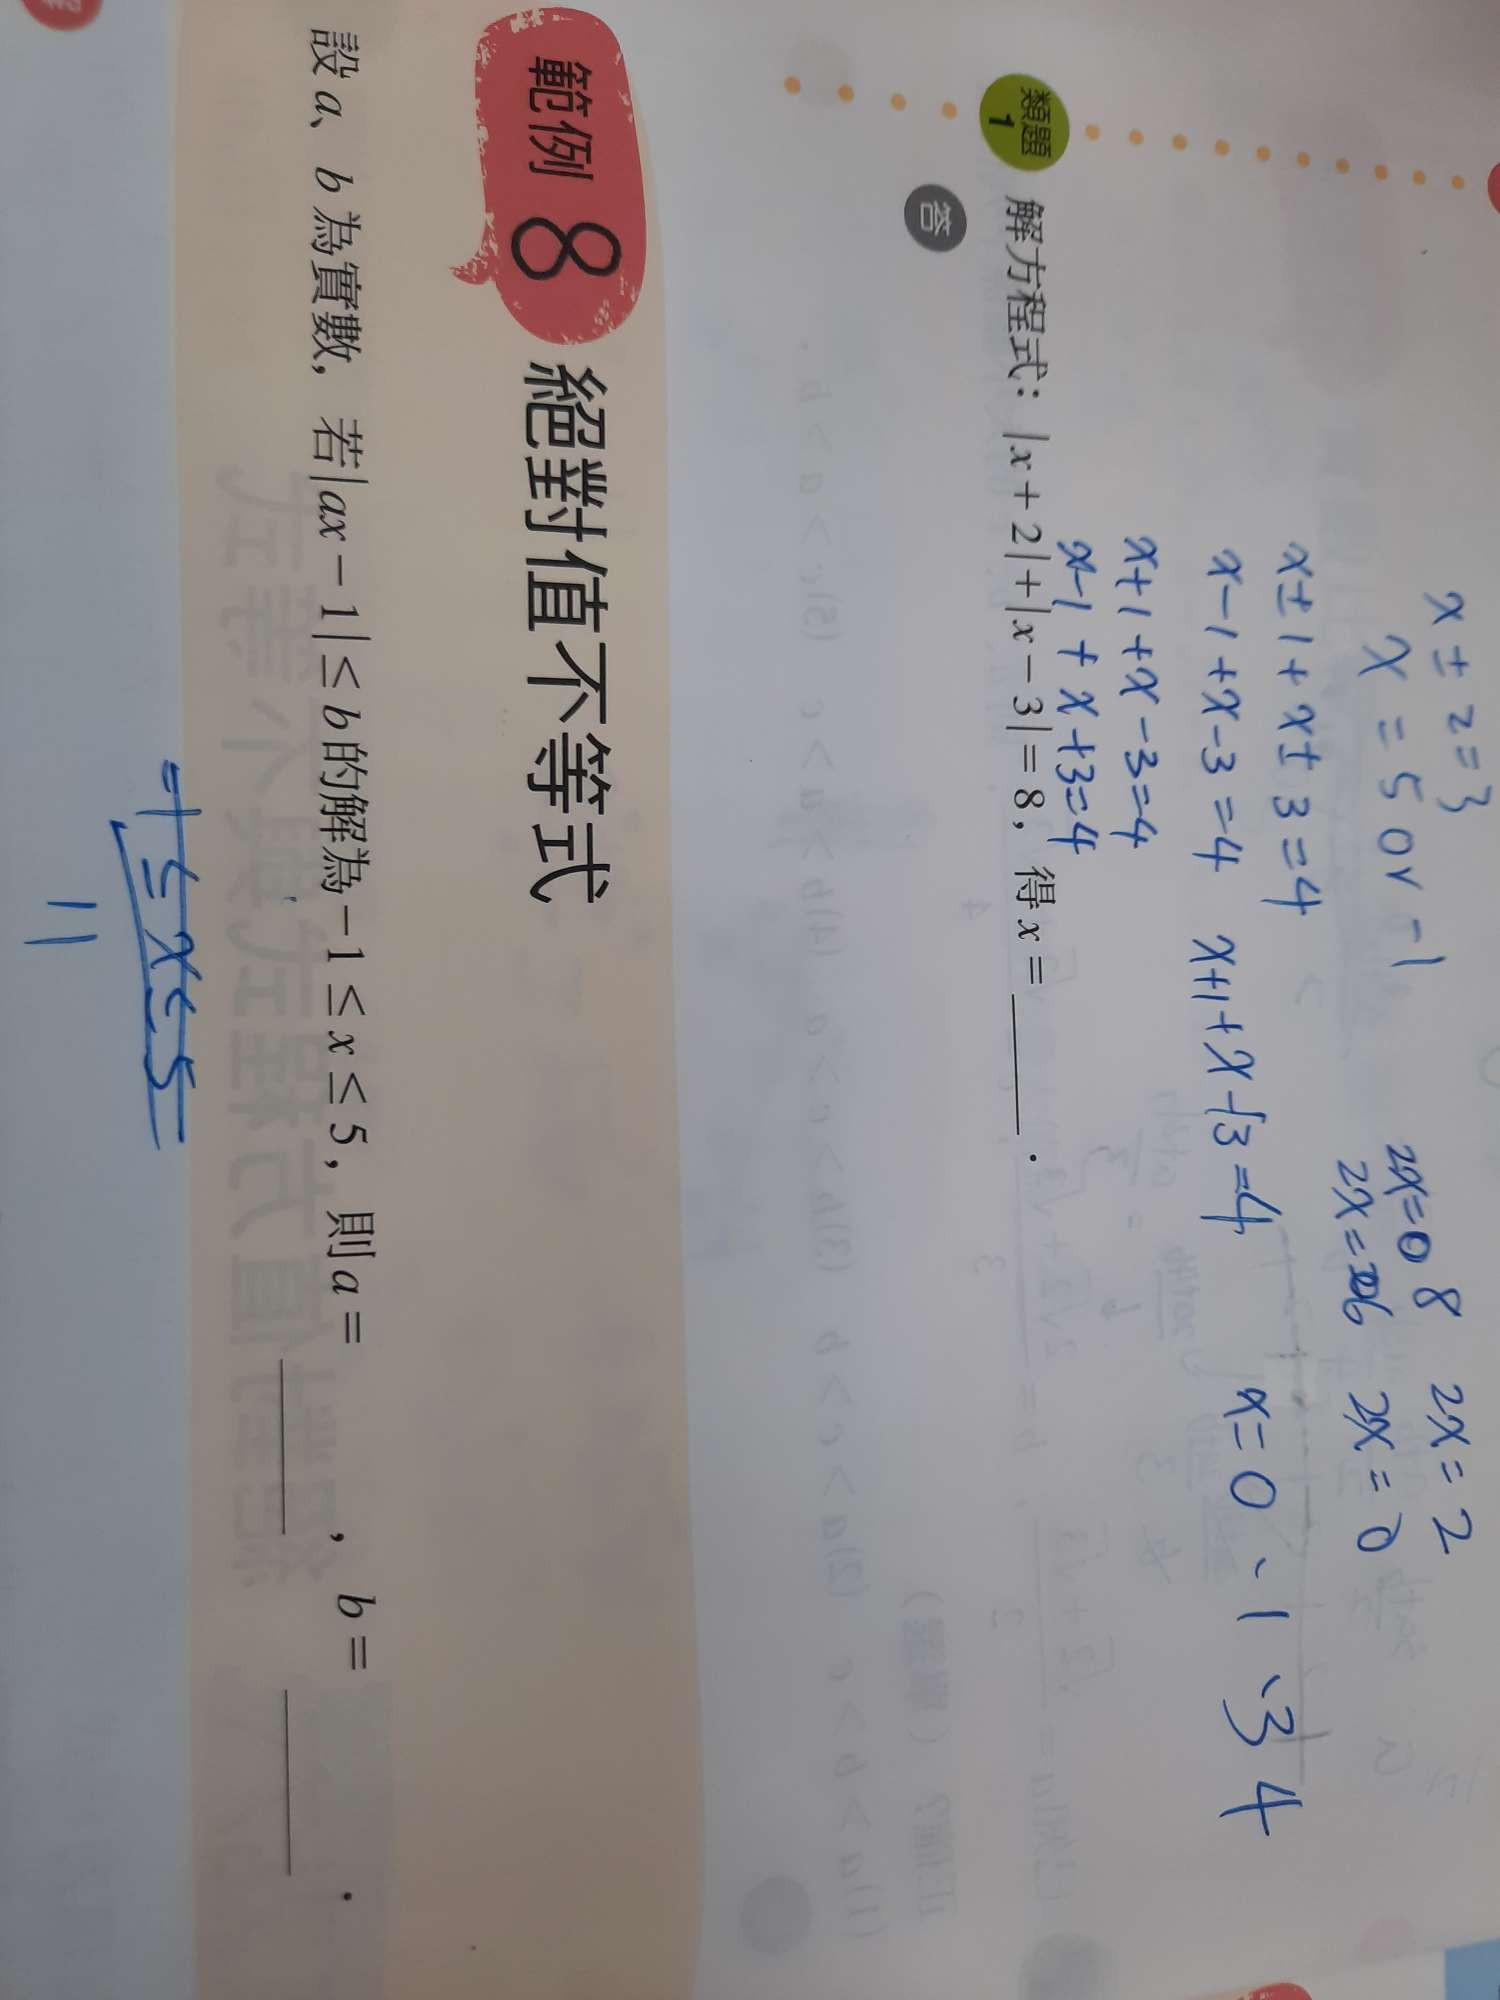 x ± 2 = 3
x = 5 or -1
2x = 0 8 2x = 2
x ± 1 + x ± 3 = 4
2x = 6 2x = 0
x - 1 + x - 3 = 4 x + 1 + x + 3 = 4
x = 0 、1 、3 4
x + 1 + x - 3 = 4
x - 1 + x + 3 = 4
類題1 解方程式：|x + 2| + |x - 3| = 8，得 x = ______ .
答
範例 8 絕對值不等式
設 a、b 為實數，若|ax - 1| ≤ b 的解為 -1 ≤ x ≤ 5，則 a = ______ ，b = ______ .
-1 ≤ x ≤ 5